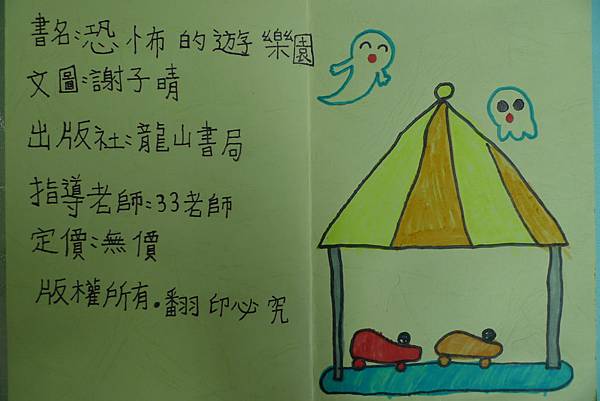 書名:恐怖的遊樂園
文圖:謝子晴
出版社:龍山書局
指導老師:33老師
定價:無價
版權所有.翻印必究